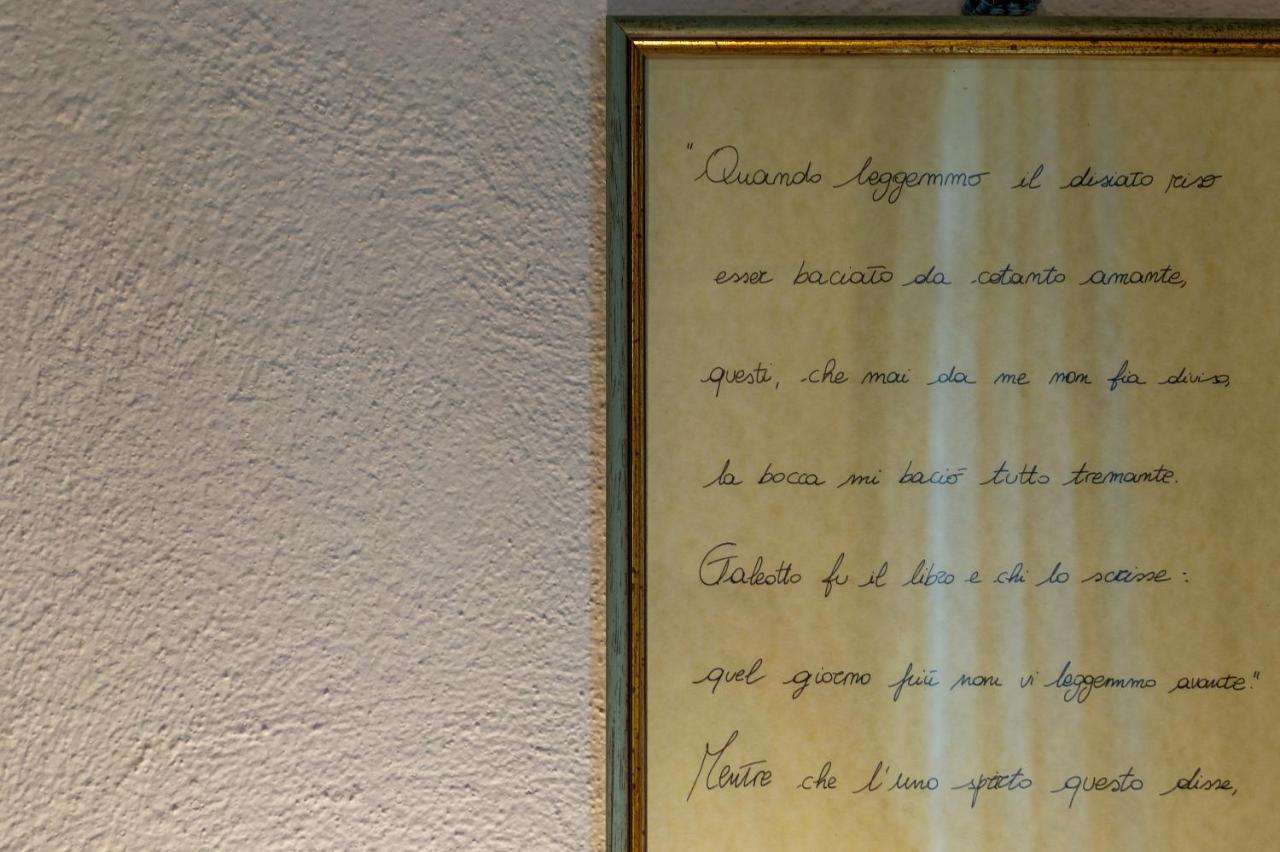 "Quando leggemmo il disiato riso
esser baciato da cotanto amante,
questi, che mai da me non fia diviso,
la bocca mi baciò tutto tremante.
Galeotto fu il libro e chi lo scrisse:
quel giorno più non vi leggemmo avante."
Mentre che l'uno spirto questo disse,